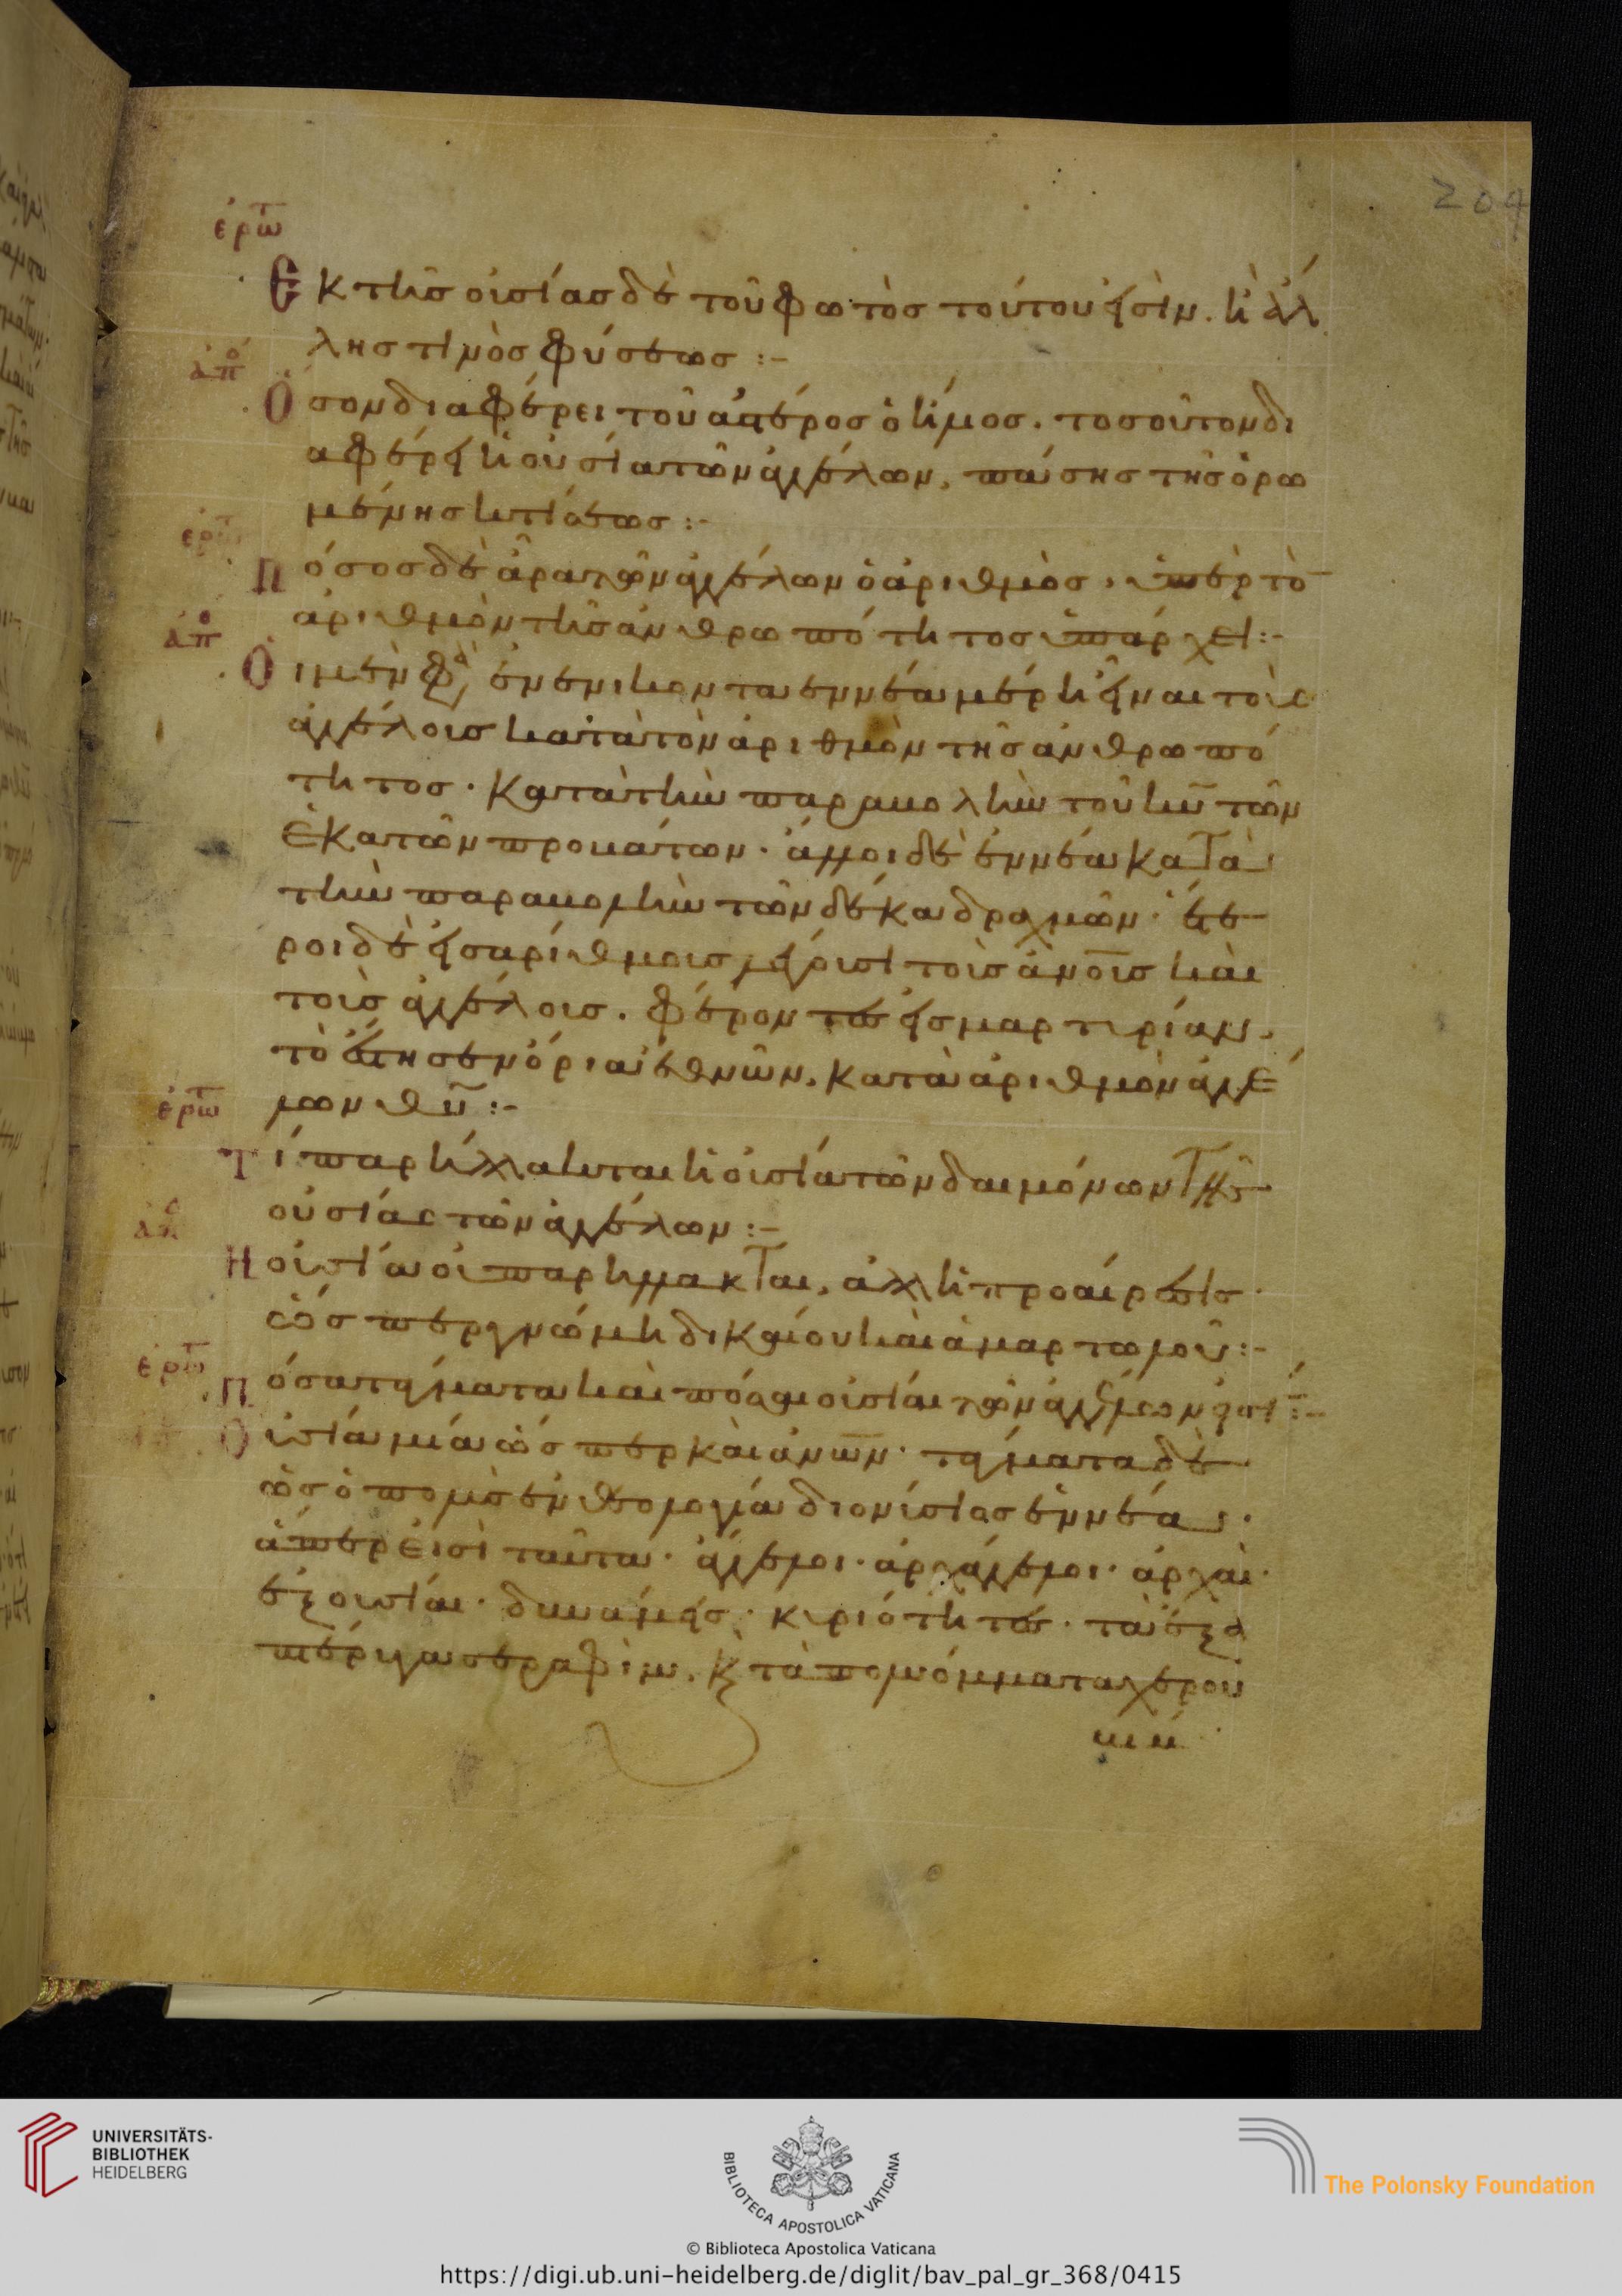 204
ἐρωτ
Ἐκ τῆς οὐσίας δὲ τοῦ φωτὸς τούτου εἰσὶν. ἢ ἄλ
λης τινὸς φύσεως :-
ἀπο
Ὅσον διαφέρει τοῦ ἀστέρος ὁ ἥλιος. τοσοῦτον δι
αφέρει ἡ οὐσία τῶν ἀγγέλων, πάσης τῆς ὁρω
μένης κτίσεως :-
ἐρωτ
Πόσος δὲ ἆρα τῶν ἀγγέλων ὁ ἀριθμὸς. ὑπὲρ τὸ
ἀριθμὸν τῆς ἀνθρωπότητος ὑπάρχει :-
ἀπο
Οἱ μὲν φα ἐνενικονταεννέα μέρη εἶναι τοὺς
ἀγγέλοις κατὰ τὸν ἀριθμὸν τῆς ἀνθρωπό
τητος. κατὰ τὴν παραβολὴν τοῦ κυ τῶν
ἑκατῶν προβάτων. ἄλλοι δὲ ἐννέα κατὰ
τὴν παραβολὴν τῶν δέκα δραχμῶν. ἕτε
ροι δὲ εἰσαρίθμοις λέγουσι τοῖς ἀνοις καὶ
τοῖς ἀγγέλοις. φέροντες εἰς μαρτυρίαν.
τὸ ἔστησεν ὅρια ἐθνῶν. κατὰ ἀριθμὸν ἀγγέ
λων θυ :-
ἐρωτ
Τί παρήλλακται ἡ οὐσία τῶν δαιμόνων τῆς
οὐσίας τῶν ἀγγέλων :-
ἀπο
Ἡ οὐσία οὐ παρήλλακται, ἀλλ ἡ προαίρεσις.
ὥσπερ γνώμη δικαίου καὶ ἁμαρτωλοῦ :-
ἐρωτ
Πόσα τάγματα καὶ πόσαι οὐσίαι τῶν ἀγγέλων εἰσί :-
Οὐσία μία ὥσπερ καὶ ἀνων. τάγματα δὲ
ὡς ὁ πολὺς ἐν θεολογία διονύσιος ἐννέα.
ἅπερ εἰσὶ ταῦτα. ἄγγελοι. ἀρχάγγελοι. ἀρχαὶ.
ἐξουσίαι. δυνάμεις. κυριότητες. τὰ ἑξα
πτέρυγα σεραφὶμ. κ τὰ πολυόμματα χερου
βίμ
UNIVERSITÄTS-
BIBLIOTHEK
HEIDELBERG
BIBLIOTECA APOSTOLICA VATICANA
The Polonsky Foundation
© Biblioteca Apostolica Vaticana
https://digi.ub.uni-heidelberg.de/diglit/bav_pal_gr_368/0415